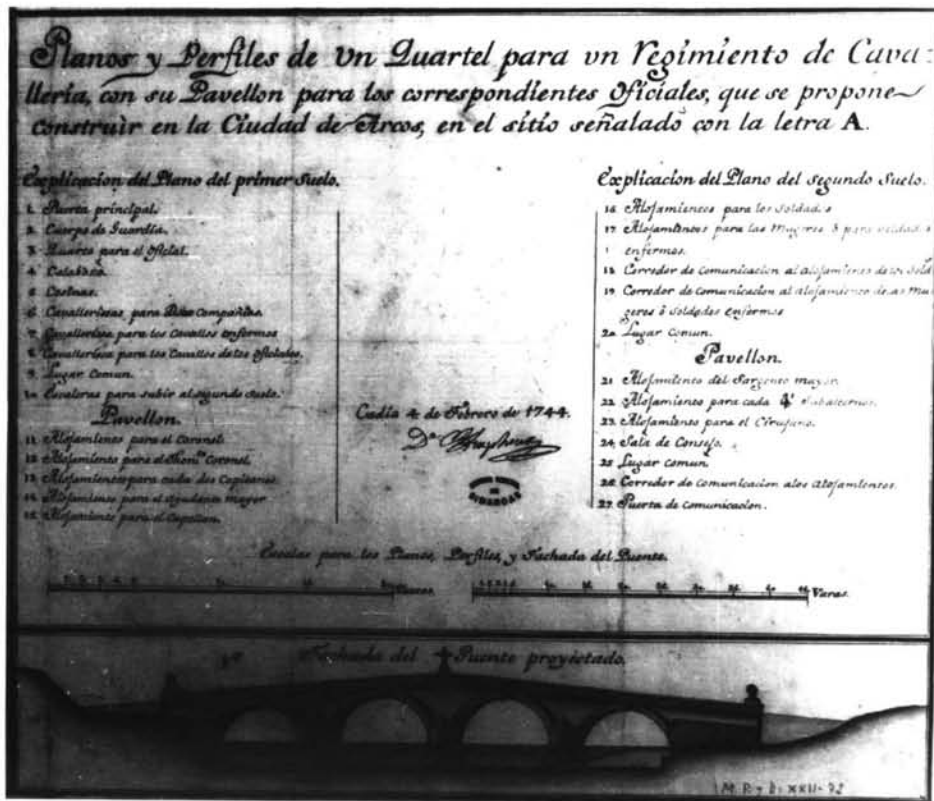 Planos y Perfiles de Vn Quartel para vn Regimiento de Cava=
lleria, con su Pavellon para los correspondientes Oficiales, que se propone
construìr en la Ciudad de Arcos, en el sitio señalado con la letra A.
Explicacion del Plano del primer suelo.
1. Puerta principal.
2. Cuerpo de Guardia.
3. Quarto para el oficial.
4. Calabozo.
5. Cosinas.
6. Cavallerizas para Compañias.
7. Cavalleriza para los Cavallos enfermos
8. Cavalleriza para los Cavallos de los oficiales.
9. Lugar Comun.
10. Escaleras para subir al segundo suelo.
Pavellon.
11. Alojamiento para el Coronel.
12. Alojamiento para el Coronel.
13. Alojamiento para cada dos Capitanes.
14. Alojamiento para el Ayudante mayor
15. Alojamiento para el Capellan.
Cadiz 4 de Febrero de 1744.
Explicacion del Plano del segundo suelo.
16. Alojamientos para los Soldados
17. Alojamientos para las Mugeres ò para soldados
enfermos.
18. Corredor de comunicacion al alojamiento de los Sold
19. Corredor de comunicacion al alojamiento de las Mu
geres ò Soldados enfermos
20. Lugar Comun.
Pavellon.
21. Alojamiento del Sargento mayor
22. Alojamiento para cada 4 Subalternos.
23. Alojamiento para el Cirujano.
24. Sala de Consejo.
25. Lugar comun.
26. Corredor de comunicacion alos alojamientos.
27. Puerta de comunicacion.
Escalas para los Planos, Perfiles, y Fachada del Puente.
Varas.
Varas.
Fachada del Puente proyéctado.
M. P. y D. XXII-92